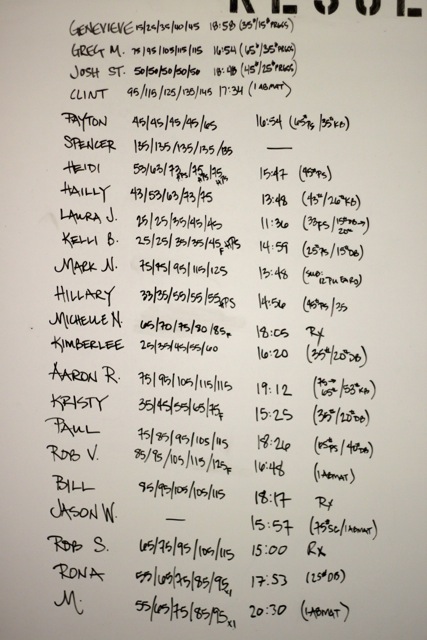 GENEVIEVE 15/25/35/40/45 18:58 (35#/15# PRGGS)
GREG M. 75/95/105/115/115 16:54 (65#/35# PRGGS)
JOSH ST. 50/50/50/50/50 18:48 (45#/25# PRGGS)
CLINT 95/115/125/135/145 17:34 (1 ABMAT)
PAYTON 45/45/45/45/65 16:54 (65# PS/35# KB)
SPENCER 135/135/135/135/135 —
HEIDI 53/63/73/75/75 15:47 (45# PS)
HAILLY 43/53/63/73/75 13:48 (43#/26# KB)
LAURA J. 25/25/35/45/45 11:36 (33 PS/15# DB→20#)
KELLI B. 25/25/35/35/45 F 14:59 (25# PS/15# DB)
MARK N. 75/75/95/115/125 13:48
HILLARY 33/35/55/55/55 14:56 (45# PS/35
MICHELLE N. 65/70/75/80/85 18:05 Rx
KIMBERLEE 25/35/45/55/60 16:20 (35#/20# DB)
AARON R. 75/95/105/115/115 19:12 (75→65#/53# KB)
KRISTY 35/45/55/65/75 F 15:25 (35#/20# DB)
PAUL 75/85/95/105/115 18:26 (65# PS/40# DB)
ROB V. 85/85/105/115/125 F 16:48 (1 ABMAT)
BILL 85/95/105/105/115 18:17 Rx
JASON W. — 15:57 (75# SC/1 ABMAT)
ROB S. 65/75/95/105/115 15:00 Rx
RONA 55/65/75/85/95 x1 17:53 (25# DB)
M. 55/65/75/85/95 x1 20:30 (1 ABMAT)